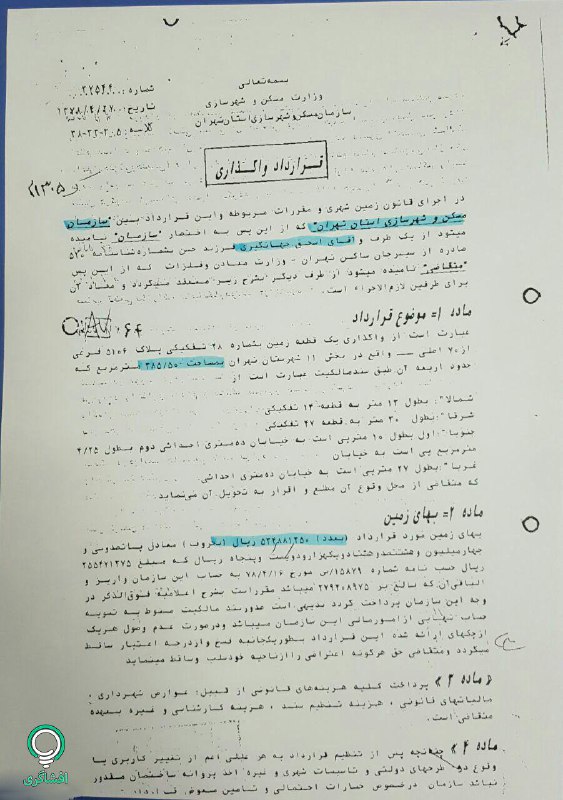 بسمه تعالی
وزارت مسکن و شهرسازی
سازمان مسکن و شهرسازی استان تهران
شماره: ۳۲۵۴۴۰۰
تاریخ: ۱۳۷۸/۴/۲۷
کلاسه: ۳۸-۳۳-۳۰۵
قرارداد واگذاری
در اجرای قانون زمین شهری و مقررات مربوطه و این قرارداد بین "سازمان
مسکن و شهرسازی استان تهران" که از این پس به اختصار "سازمان" نامیده
میشود از یک طرف و آقای اسحق جهانگیری فرزند حسن بشماره شناسنامه ۵۳۰
صادره از سیرجان ساکن تهران - وزارت معادن و فلزات که از این پس
"متقاضی" نامیده میشود از طرف دیگر بشرح زیر منعقد میگردد و مفاد آن
برای طرفین لازم الاجراء است.
ماده ۱= موضوع قرارداد
عبارت است از واگذاری یک قطعه زمین بشماره ۲۸ تفکیکی پلاک ۵۱۰۶ فرعی
از ۷۰ اصلی واقع در بخش ۱۱ شهرستان تهران بمساحت ۳۸۵/۵۰ مترمربع که
حدود اربعه آن طبق سند مالکیت عبارت است از
شمالا": بطول ۱۳ متر به قطعه ۱۴ تفکیکی
شرقا": بطول ۳۰ متر به قطعه ۲۷ تفکیکی
جنوبا": اول بطول ۱۰ متر پی است به خیابان ده متری احداثی دوم بطول ۴/۲۵
مترمربع پی است به خیابان
غربا": بطول ۲۷ متر پی است به خیابان ده متری احداثی
که متقاضی از محل وقوع آن مطلع و اقرار به تحویل آن می نماید.
ماده ۲= بهای زمین
بهای زمین مورد قرارداد (بعدد) ۵۳۴۸۸۱۲۵۰ ریال (بحروف) معادل پانصد و سی و
چهار میلیون و هشتصد و هشتاد و یکهزار و دویست و پنجاه ریال که مبلغ ۲۵۵۴۷۲۲۷۵
ریال حسب نامه شماره ۱۵۸۷۹/س مورخ ۷۸/۴/۱۶ به حساب این سازمان واریز و
الباقی آن که بالغ بر ۲۷۹۴۰۸۹۷۵ میباشد مقرر است بشرح اعلامیه فوق الذکر در
وجه این سازمان پرداخت گردد بدیهی است صدور سند مالکیت منوط به تسویه
حساب نهایی از امور مالی این سازمان میباشد و در صورت عدم وصول هر یک
از چکهای ارائه شده این قرارداد بطور یکجانبه فسخ و از درجه اعتبار ساقط
میگردد و متقاضی حق هر گونه اعتراضی را از ناحیه خود سلب و ساقط مینماید
« ماده ۳ » پرداخت کلیه هزینه های قانونی از قبیل: عوارض شهرداری،
مالیاتهای قانونی، هزینه تنظیم سند، هزینه کارشناسی و غیره بعهده
متقاضی است.
ماده ۴ » چنانچه پس از تنظیم قرارداد به هر علتی اعم از تغییر کاربری یا
وقوع در طرحهای دولتی و تاسیسات شهری و غیره اخذ پروانه ساختمان مقدور
نباشد سازمان در خصوص خسارات احتمالی و تامین معوض
افشاگری